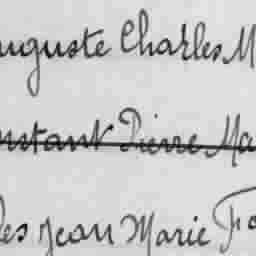 uguste Charles M
nstant Pierre Ma
les Jean Marie Fo